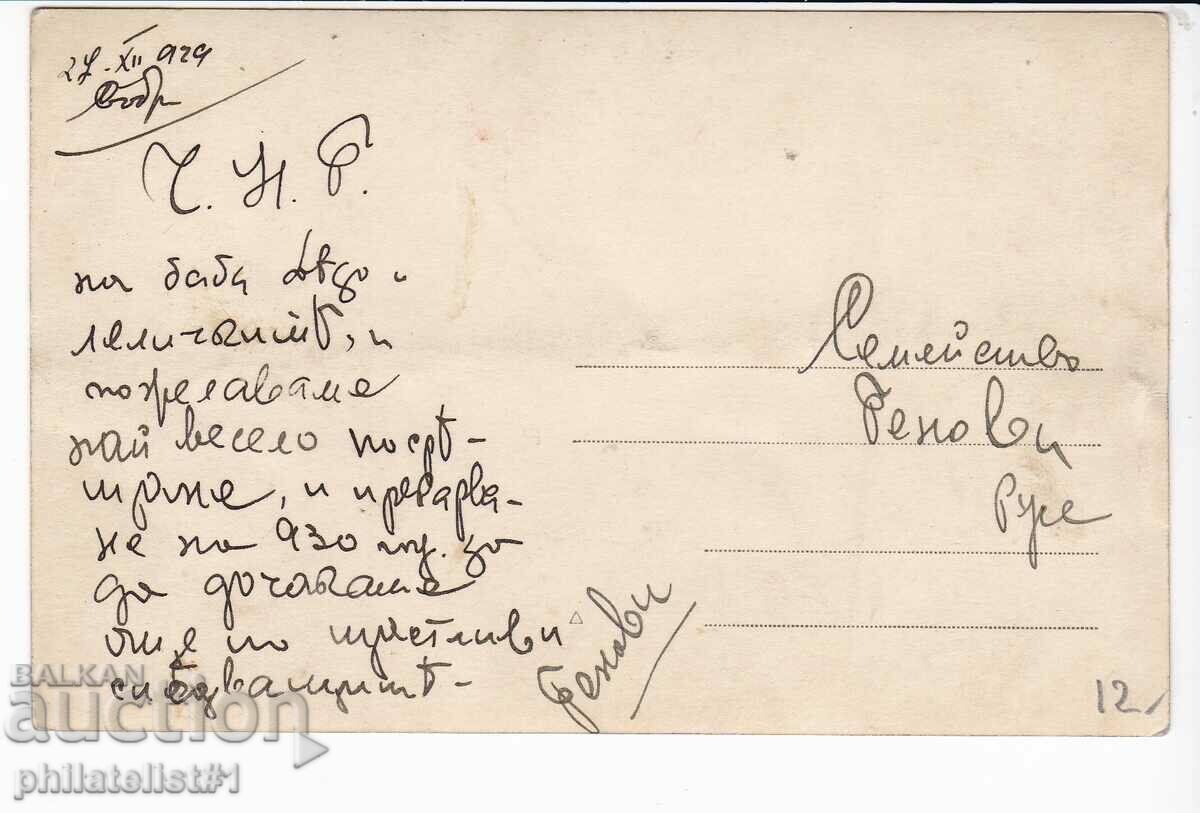 27. XII 929
Ч. Н. Г.
на баба дѣдо и
леличкитѣ, и
пожелаваме
най весело посрѣ-
щане, и прекарва-
не на 930 год. за
да дочакаме
още по щастливи
следващитѣ -
Геновци
Семейство
Геновци
Русе
12
BALKAN
auction
philatelist#1